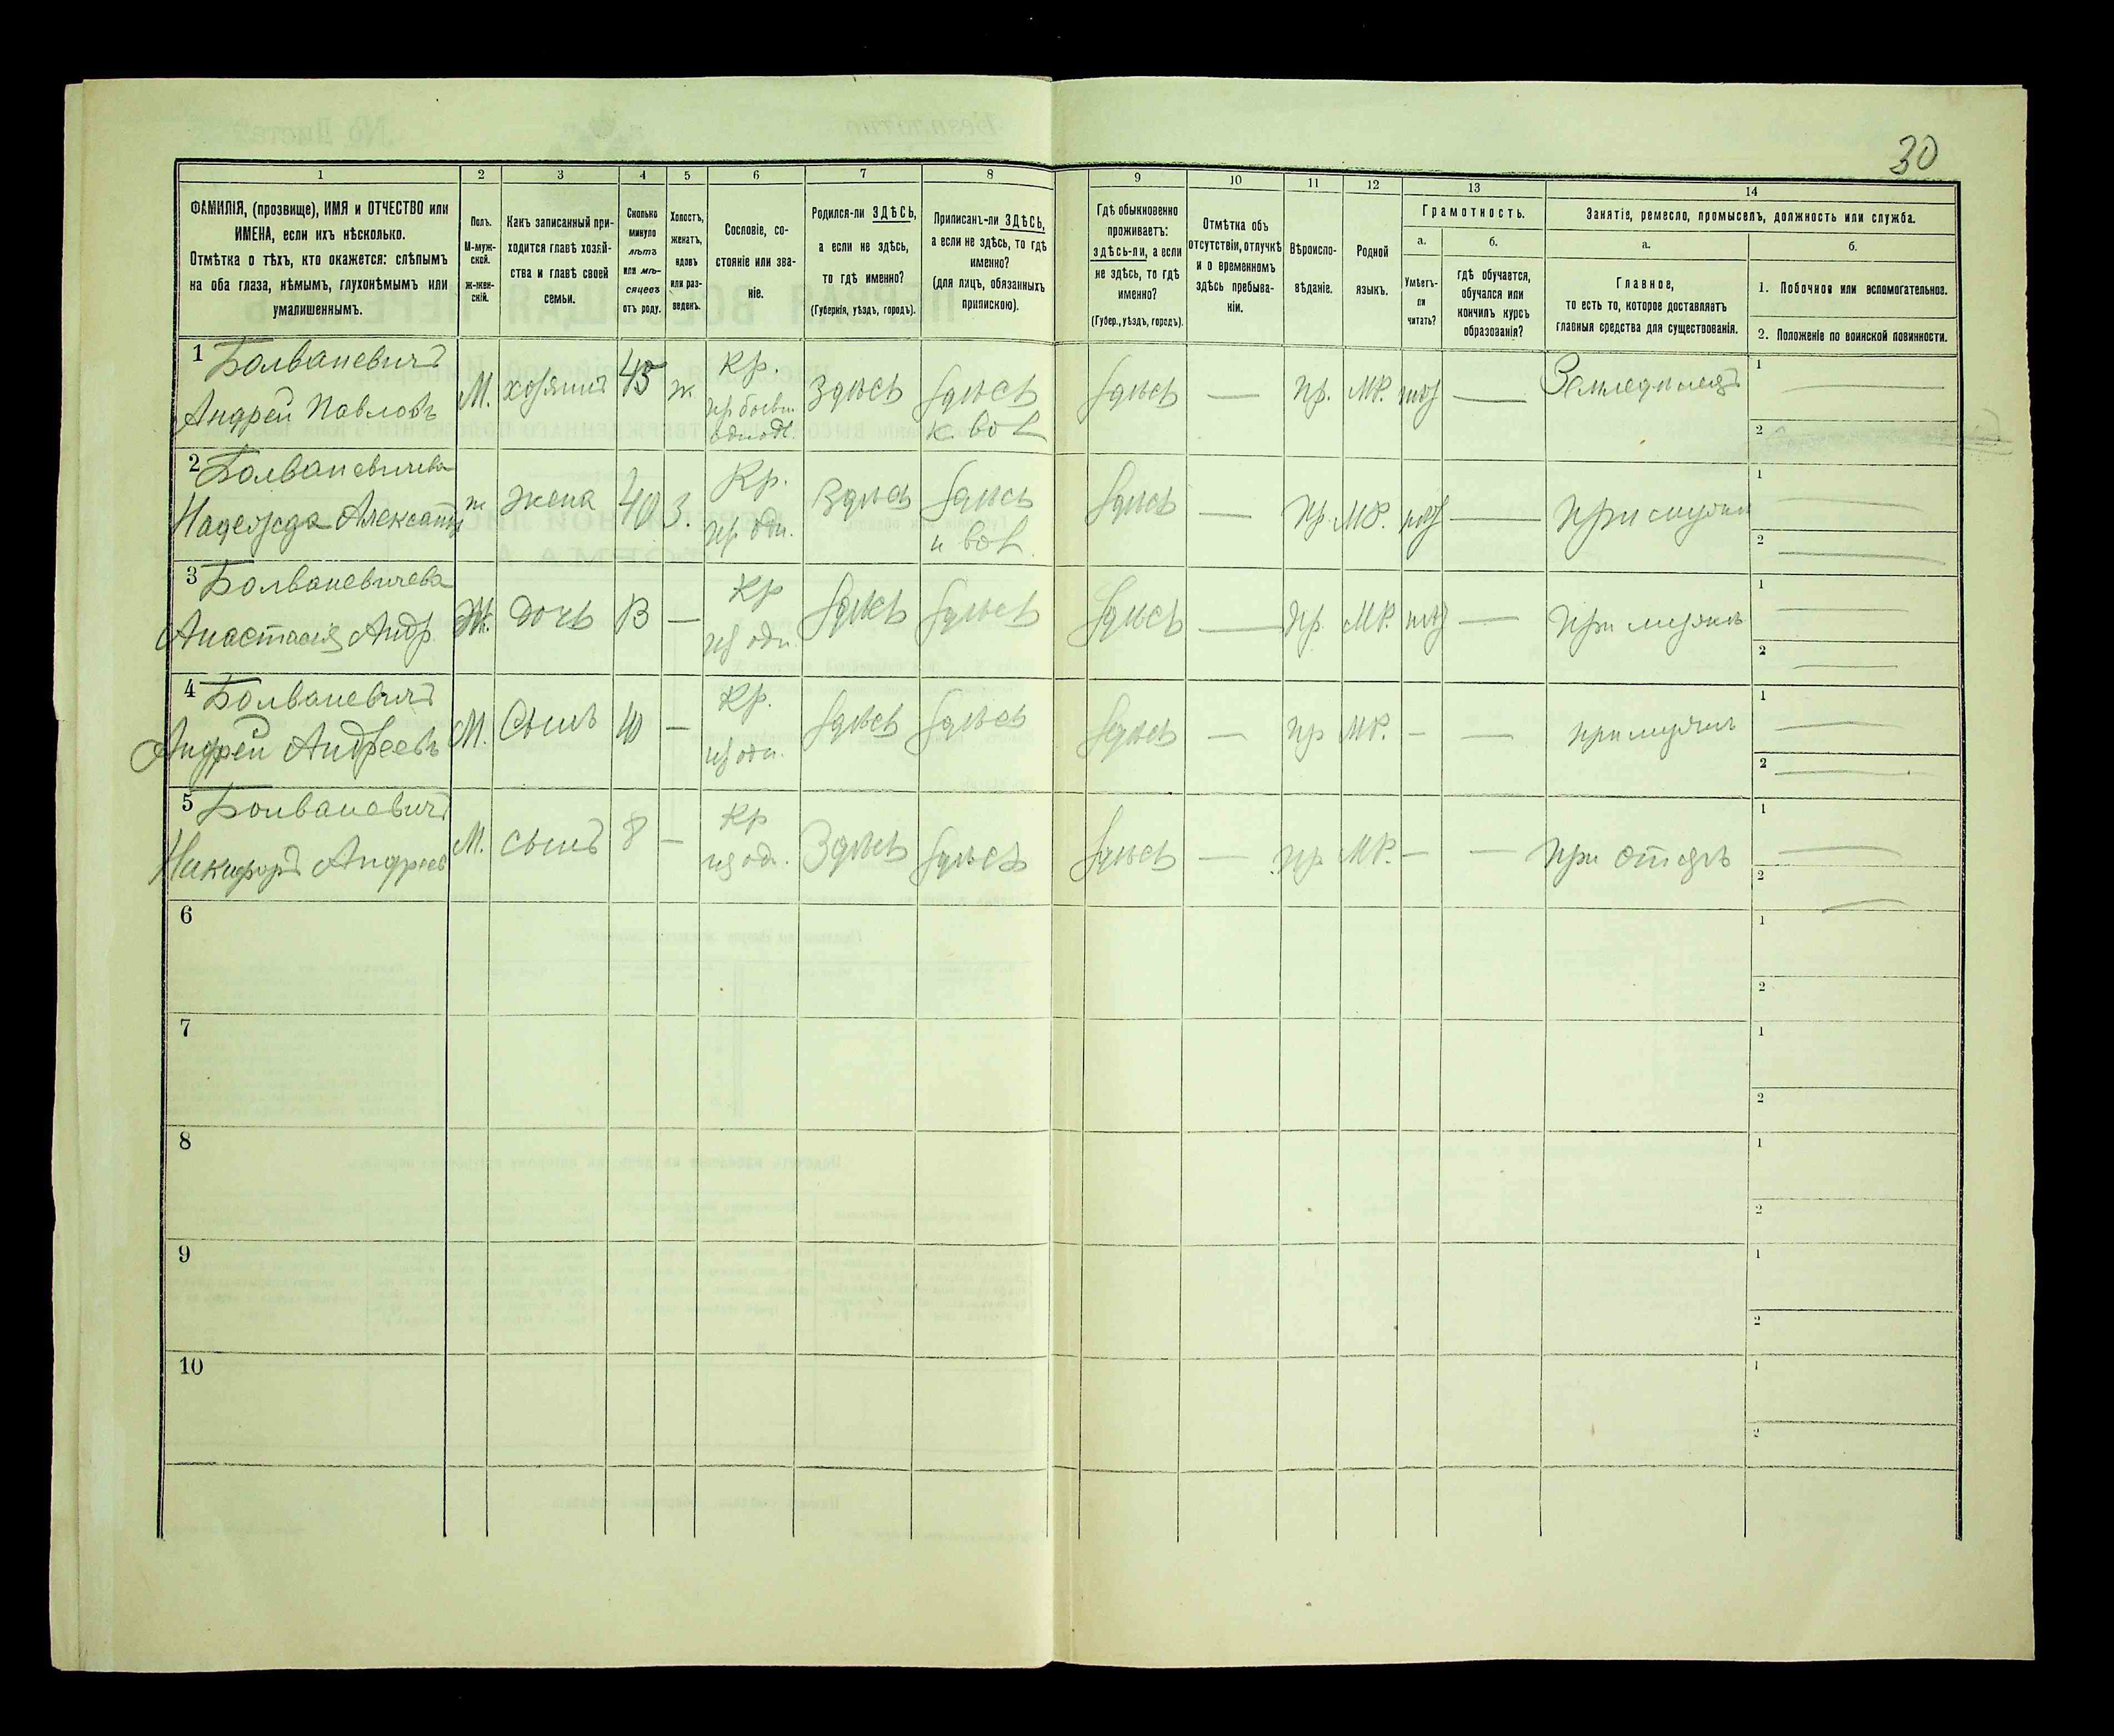 30
1 2 3 4 5 6 7 8 9 10 11 12 13 14
ФАМИЛІЯ, (прозвище), ИМЯ и ОТЧЕСТВО или ИМЕНА, если ихъ нѣсколько.
Отмѣтка о тѣхъ, кто окажется: слѣпымъ на оба глаза, нѣмымъ, глухонѣмымъ или умалишеннымъ.
Полъ. М-муж-ской. Ж-жен-скій.
Какъ записанный при-ходится главѣ хозяй-ства и главѣ своей семьи.
Сколько минуло лѣтъ или мѣ-сяцевъ отъ роду.
Холостъ, женатъ, вдовъ или раз-веденъ.
Сословіе, со-стояніе или зва-ніе.
Родился-ли ЗДѢСЬ, а если не здѣсь, то гдѣ именно? (Губернія, уѣздъ, городъ).
Приписанъ-ли ЗДѢСЬ, а если не здѣсь, то гдѣ именно? (для лицъ, обязанныхъ припискою).
Гдѣ обыкновенно проживаетъ: здѣсь-ли, а если не здѣсь, то гдѣ именно? (Губер., уѣздъ, городъ).
Отмѣтка объ отсутствіи, отлучкѣ и о временномъ здѣсь пребыва-ніи.
Вѣроиспо-вѣданіе.
Родной языкъ.
Грамотность.
а. Умѣетъ-ли читать?
б. гдѣ обучается, обучался или кончилъ курсъ образованія?
Занятіе, ремесло, промыселъ, должность или служба.
а. Главное, то есть то, которое доставляетъ главныя средства для существованія.
б.
1. Побочное или вспомогательное.
2. Положеніе по воинской повинности.
1 Болваневичъ Андрей Павловъ М. хозяинъ 45 ж Кр. Здѣсь Здѣсь Здѣсь — пр. МР. — Земледѣлецъ 1 — 2
2 Болваневичева Надежда ж жена 40 З. Кр. Здѣсь Здѣсь Здѣсь — пр. МР. — При мужѣ 1 — 2 —
3 Болваневичева Анастасія Андр. Ж. дочь 13 — Кр из одн. Здѣсь Здѣсь Здѣсь — пр. МР. — 1 — 2 —
4 Болваневичъ Андрей Андреевъ М. Сынъ 10 — Кр. из одн. Здѣсь Здѣсь Здѣсь — пр МР. — — 1 — 2 —
5 Болваневичъ Никифоръ Андреев М. сынъ 8 — Кр из одн. Здѣсь Здѣсь Здѣсь — пр МР. — — При отцѣ 1 — 2 —
6 1 2
7 1 2
8 1 2
9 1 2
10 1 2